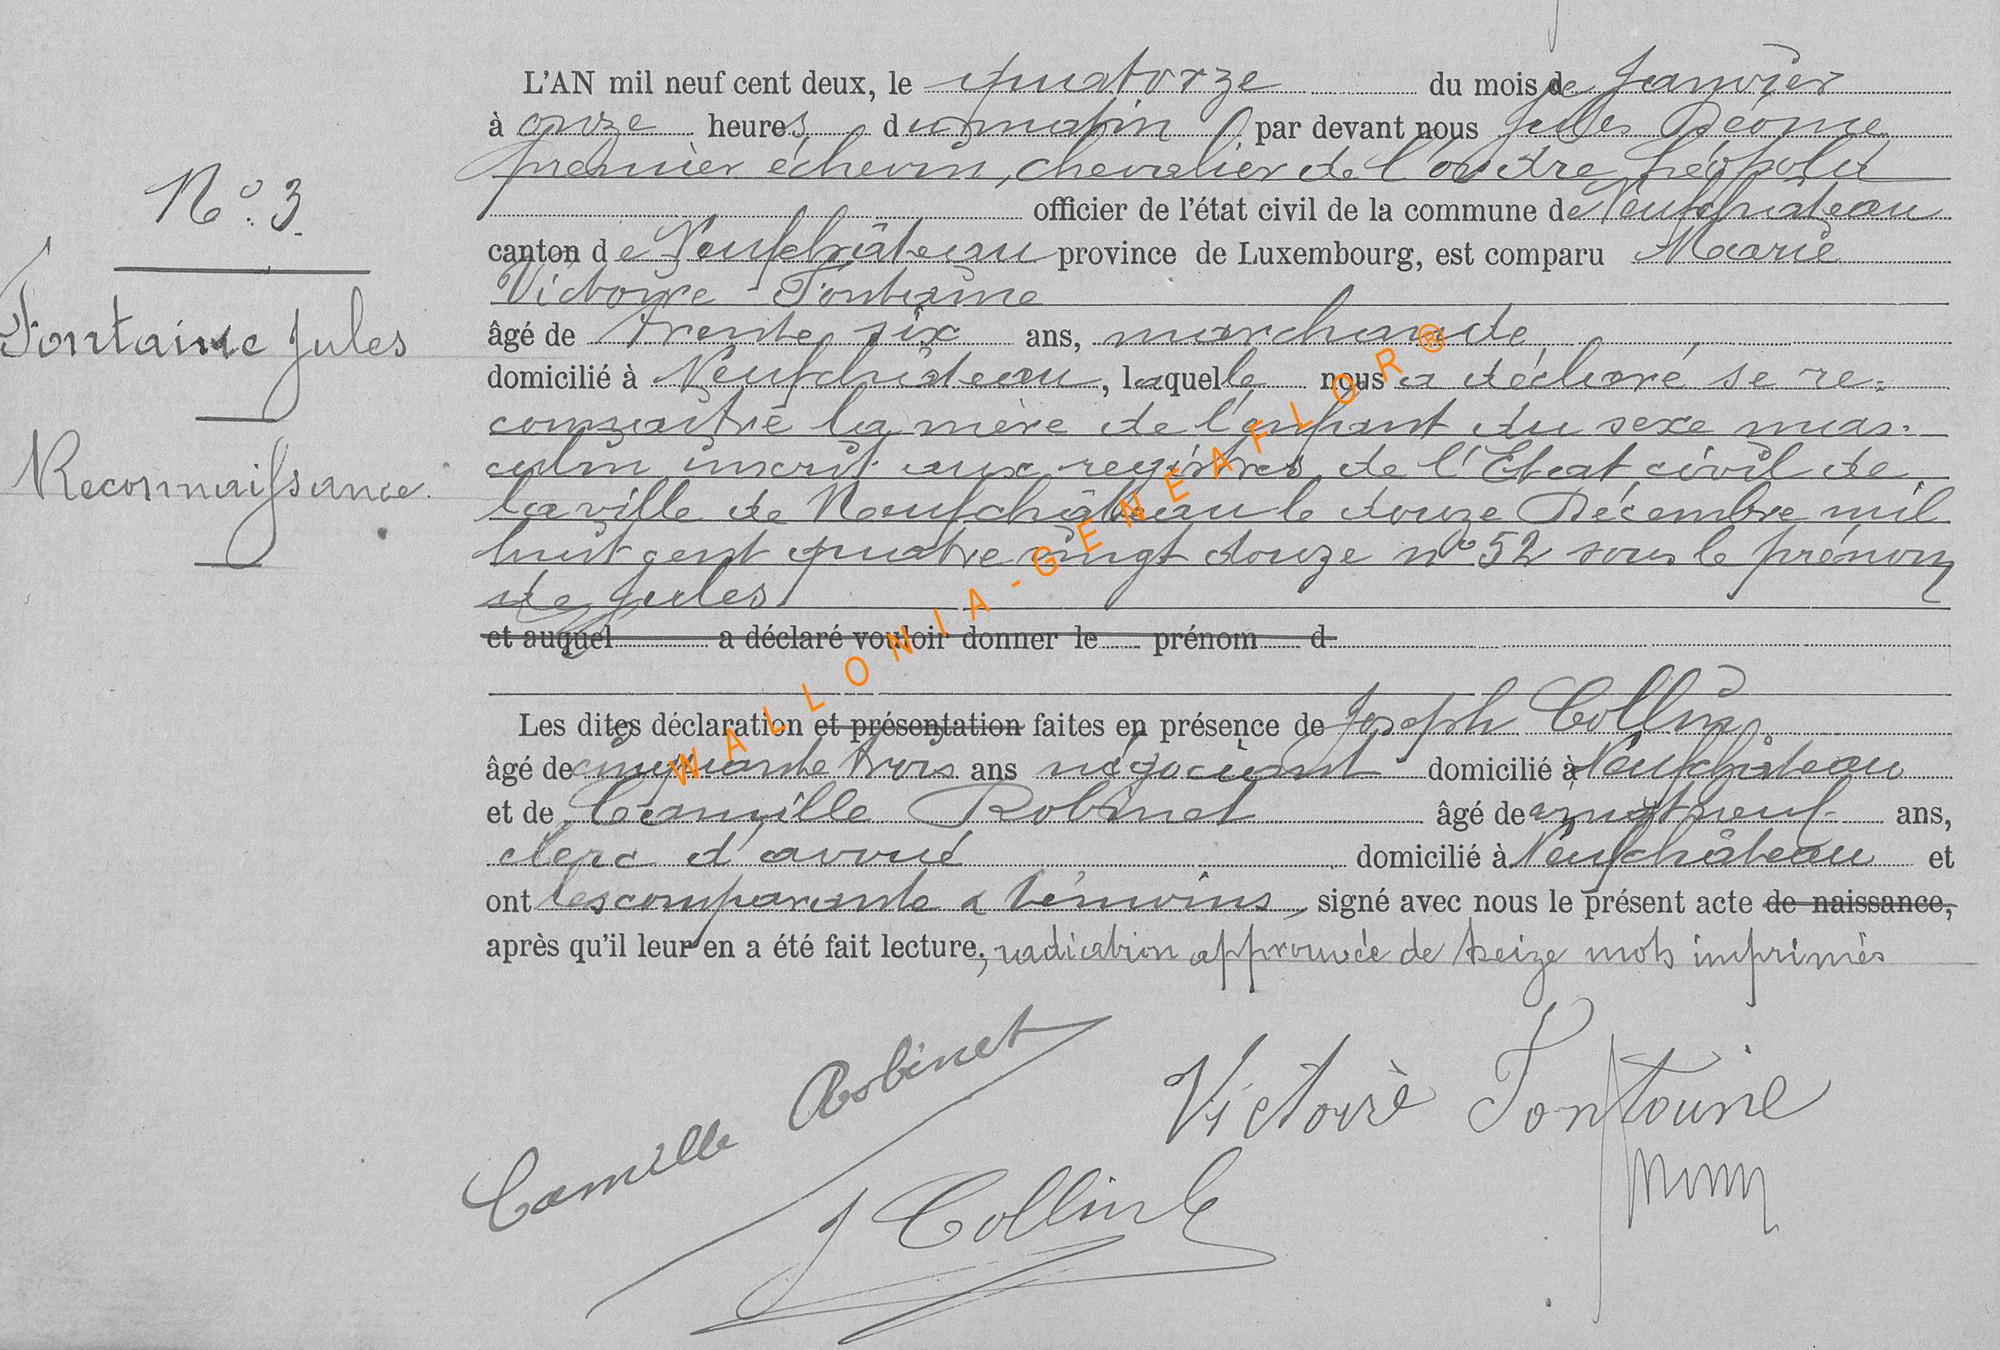 N° 3
Fontaine Jules
Reconnaissance.
L'AN mil neuf cent deux, le quatorze du mois de Janvier
à onze heures du matin par devant nous Jules Déome
premier échevin, chevalier de l'ordre Léopold
officier de l'état civil de la commune de Neufchâteau
canton de Neufchâteau province de Luxembourg, est comparu Marie
Victoire Fontaine
âgé de trente six ans, marchande,
domicilié à Neufchâteau, laquelle nous a déclaré se re-
connaître la mère de l'enfant du sexe mas-
culin inscrit aux registres de l'Etat civil de
la ville de Neufchâteau le douze Décembre mil
huit cent quatre vingt douze n° 52 sous le prénom
de Jules
et auquel a déclaré vouloir donner le prénom d
Les dites déclaration et présentation faites en présence de Joseph Collin,
âgé de cinquante trois ans négociant domicilié à Neufchâteau
et de Camille Robinet âgé de vingt neuf ans,
clerc d'avoué domicilié à Neufchâteau et
ont les comparante & témoins, signé avec nous le présent acte de naissance,
après qu'il leur en a été fait lecture; radiation approuvée de treize mots imprimés
Camille Robinet
Victoire Fontaine
J Collin
WALLONIA-GENEAFLOR®